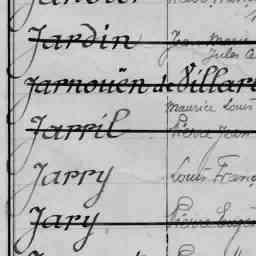 Jardin Jean Marie
Jules
Jarnouën de Villart
Maurice Louis
Jarril Pierre Jean
Jarry Louis Franç
Jary Pierre Eugè